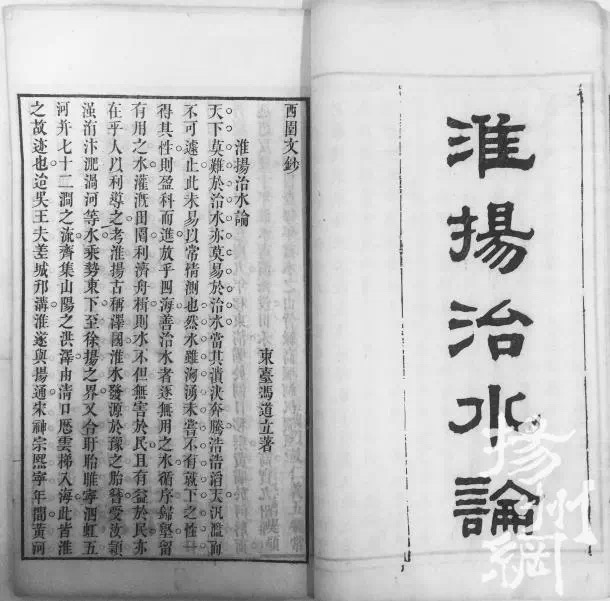 淮揚治水論
西園文鈔
淮揚治水論
東臺馮道立著
天下莫難於治水亦莫易於治水當其潰決奔騰浩浩滔天汎濫而
不可遽止此未易以常情測也然水雖洶湧未嘗不有就下之性一
得其性則盈科而進放乎四海善治水者逐無用之水循序歸壑留
有用之水灌漑田園利濟舟楫則水不但無害於民且有益於民亦
在乎人以利導之考淮揚古稱澤國淮水發源於豫之胎簪受汝潁
洧汴渦河等水乘勢東下至徐揚之界又合盱眙睢寧泗虹五
河并七十二澗之流齊集山陽之洪澤由清口歷雲梯入海此皆淮
之故迹也迨吳王夫差城邗溝淮遂與揚通宋神宗熙寧年間黃河
揚州網